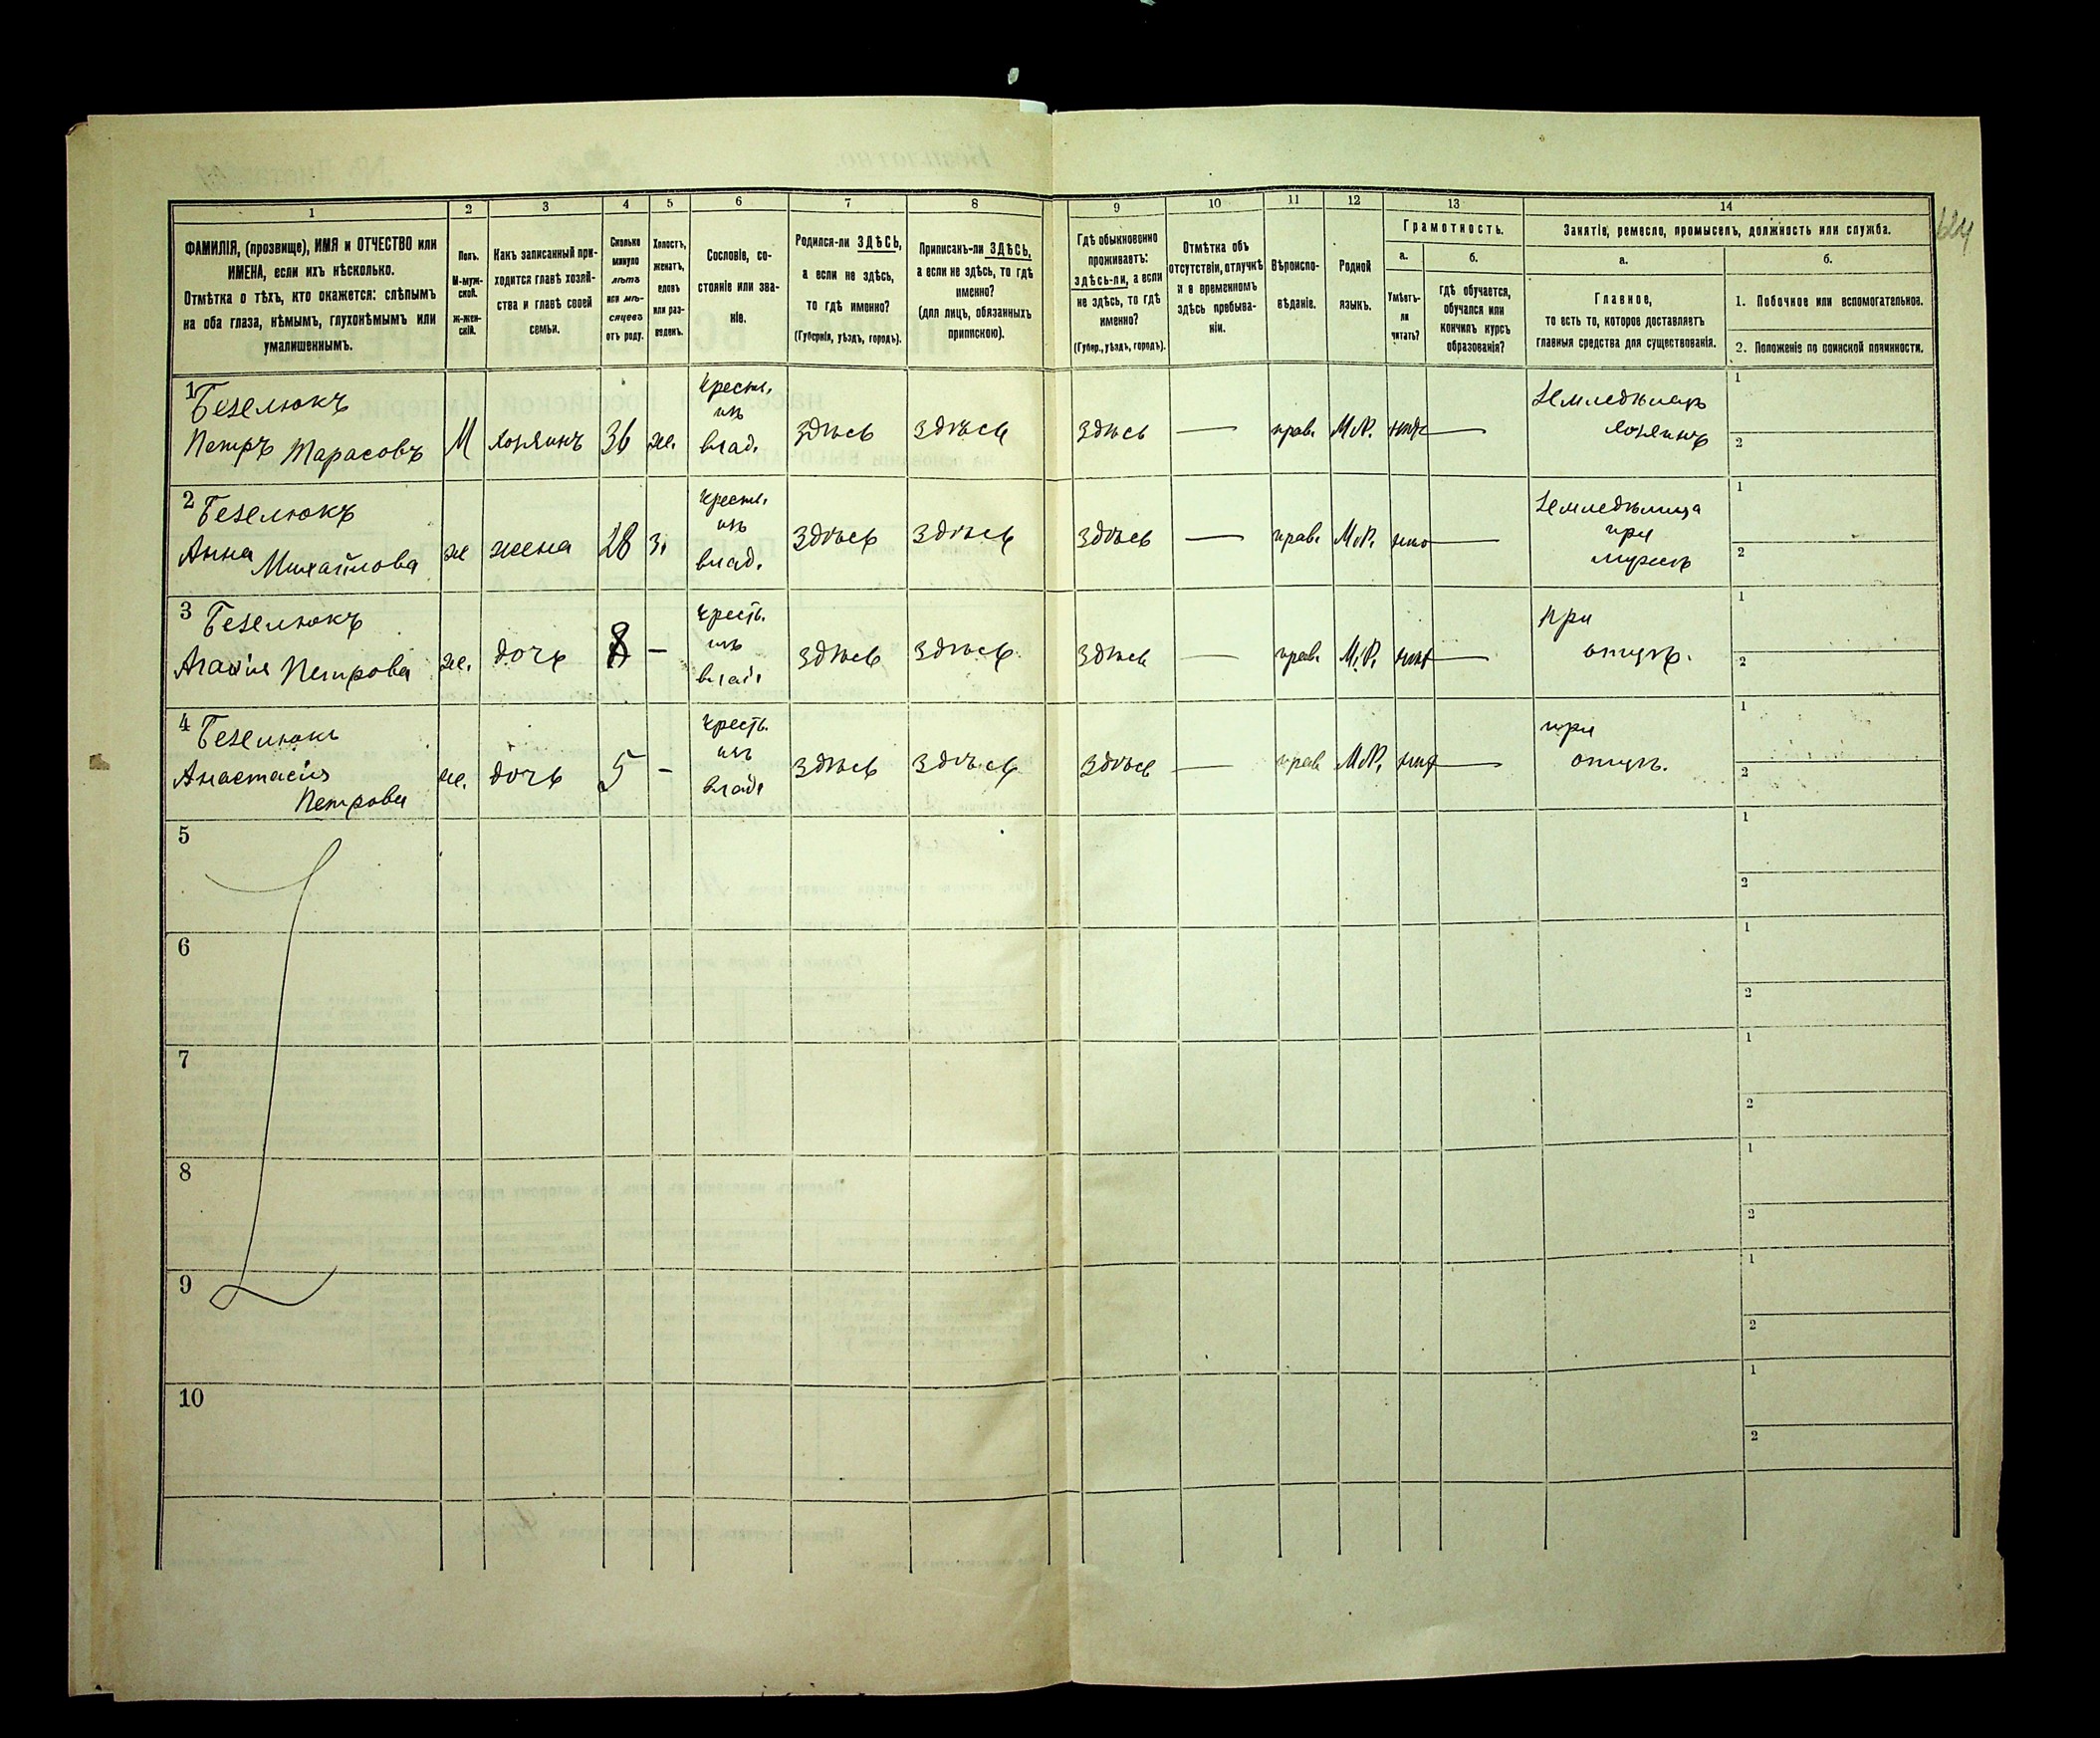 1 2 3 4 5 6 7 8 9 10 11 12 13 14
ФАМИЛІЯ, (прозвище), ИМЯ и ОТЧЕСТВО или
ИМЕНА, если ихъ нѣсколько.
Отмѣтка о тѣхъ, кто окажется: слѣпымъ
на оба глаза, нѣмымъ, глухонѣмымъ или
умалишеннымъ.
Полъ.
М-муж-
ской.
Ж-жен-
скій.
Какъ записанный при-
ходится главѣ хозяй-
ства и главѣ своей
семьи.
Сколько
минуло
лѣтъ
или мѣ-
сяцевъ
отъ роду.
Холостъ,
женатъ,
вдовъ
или раз-
веденъ.
Сословіе, со-
стояніе или зва-
ніе.
Родился-ли ЗДѢСЬ,
а если не здѣсь,
то гдѣ именно?
(Губернія, уѣздъ, городъ).
Приписанъ-ли ЗДѢСЬ,
а если не здѣсь, то гдѣ
именно?
(для лицъ, обязанныхъ
припискою).
Гдѣ обыкновенно
проживаетъ:
здѣсь-ли, а если
не здѣсь, то гдѣ
именно?
(Губер., уѣздъ, городъ).
Отмѣтка объ
отсутствіи, отлучкѣ
и о временномъ
здѣсь пребыва-
ніи.
Вѣроиспо-
вѣданіе.
Родной
языкъ.
Грамотность.
а.
Умѣетъ-
ли
читать?
б.
гдѣ обучается,
обучался или
кончилъ курсъ
образованія?
Занятіе, ремесло, промыселъ, должность или служба.
а.
Главное,
то есть то, которое доставляетъ
главныя средства для существованія.
б.
1. Побочное или вспомогательное.
2. Положеніе по воинской повинности.
1 Безелюкъ
Петръ Тарасовъ М хозяинъ 36 же. крестьн. изъ влад. здѣсь здѣсь здѣсь — прав. М.Р. нѣтъ — Земледѣлецъ хозяинъ 1 2
2 Безелюкъ
Анна Михайлова ж жена 28 з. крестьн. изъ влад. здѣсь здѣсь здѣсь — прав. М.Р. — Земледѣлица при мужѣ 1 2
3 Безелюкъ
Агафія Петрова же. дочь 8 — крестъ. изъ влад. здѣсь здѣсь здѣсь — прав. М.Р. — при отцѣ. 1 2
4 Безелюкъ
Анастасія
Петрова же. дочь 5 — крестъ. изъ влад. здѣсь здѣсь здѣсь — прав. М.Р. — при отцѣ. 1 2
5 1 2
6 1 2
7 1 2
8 1 2
9 1 2
10 1 2